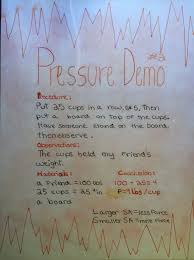 #2
Pressure Demo
Procedure:
Put 25 cups in a row, 5x5, Then
put a board on top of the cups.
Have someone stand on the board,
then observe.
Observations:
The cups held my friend's
weight.
Materials: Conclusion:
a friend = 100 lbs 100 ÷ 25 = 4
25 cups = 25 in
a board
Larger SA = less Force
Smaller SA = more Force